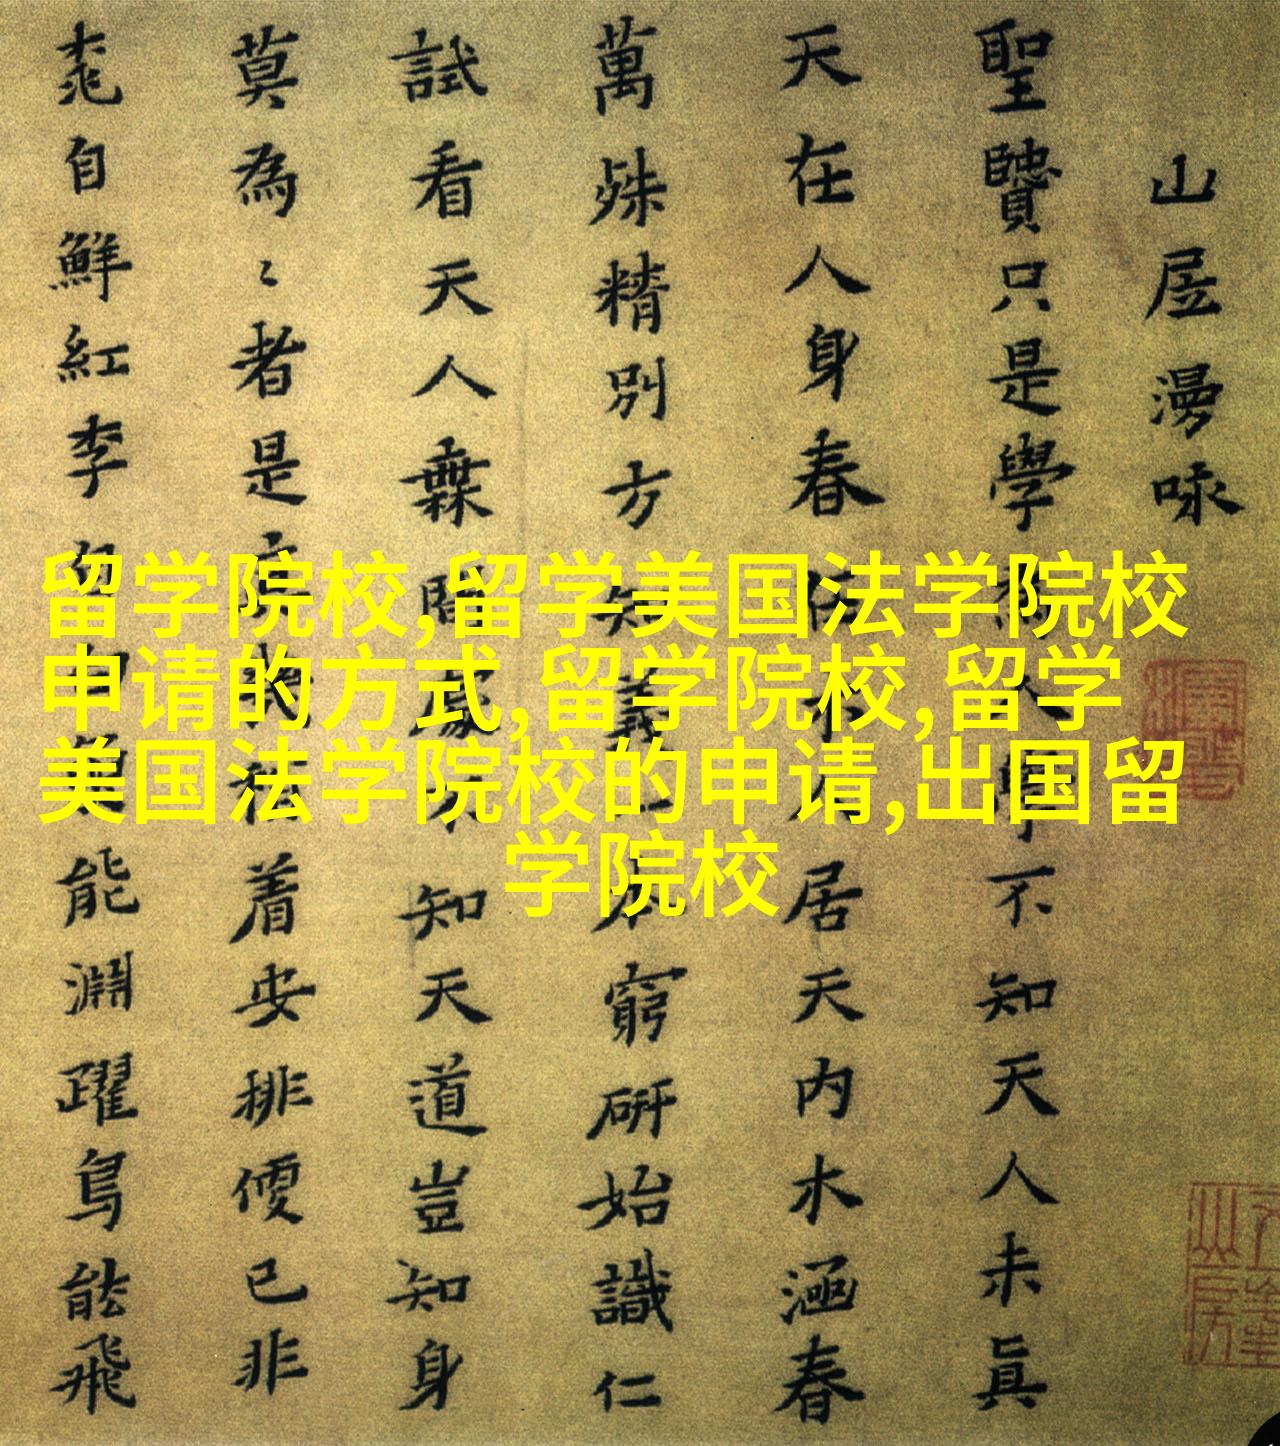 山居漫咏
聖賢只是學人學不知天人未真
天在人身春居天内水涵春
萬殊精別方知義一本窮研始識仁
試看天人無間處不知天道豈知身
莫為〻者是着安排便已非
桃自鮮紅李能淵躍鳥能飛
留学院校,留学美国法学院校
申请的方式,留学院校,留学
美国法学院校的申请,出国留
学院校